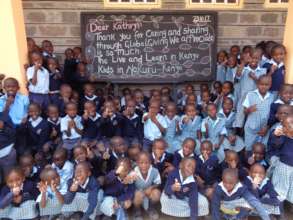 Dear Kathryn
Thank you for Caring and Sharing
through GlobalGiving We Appreciate
it so much.
The Live and Learn in Kenya
Kids in Nakuru - Kenya